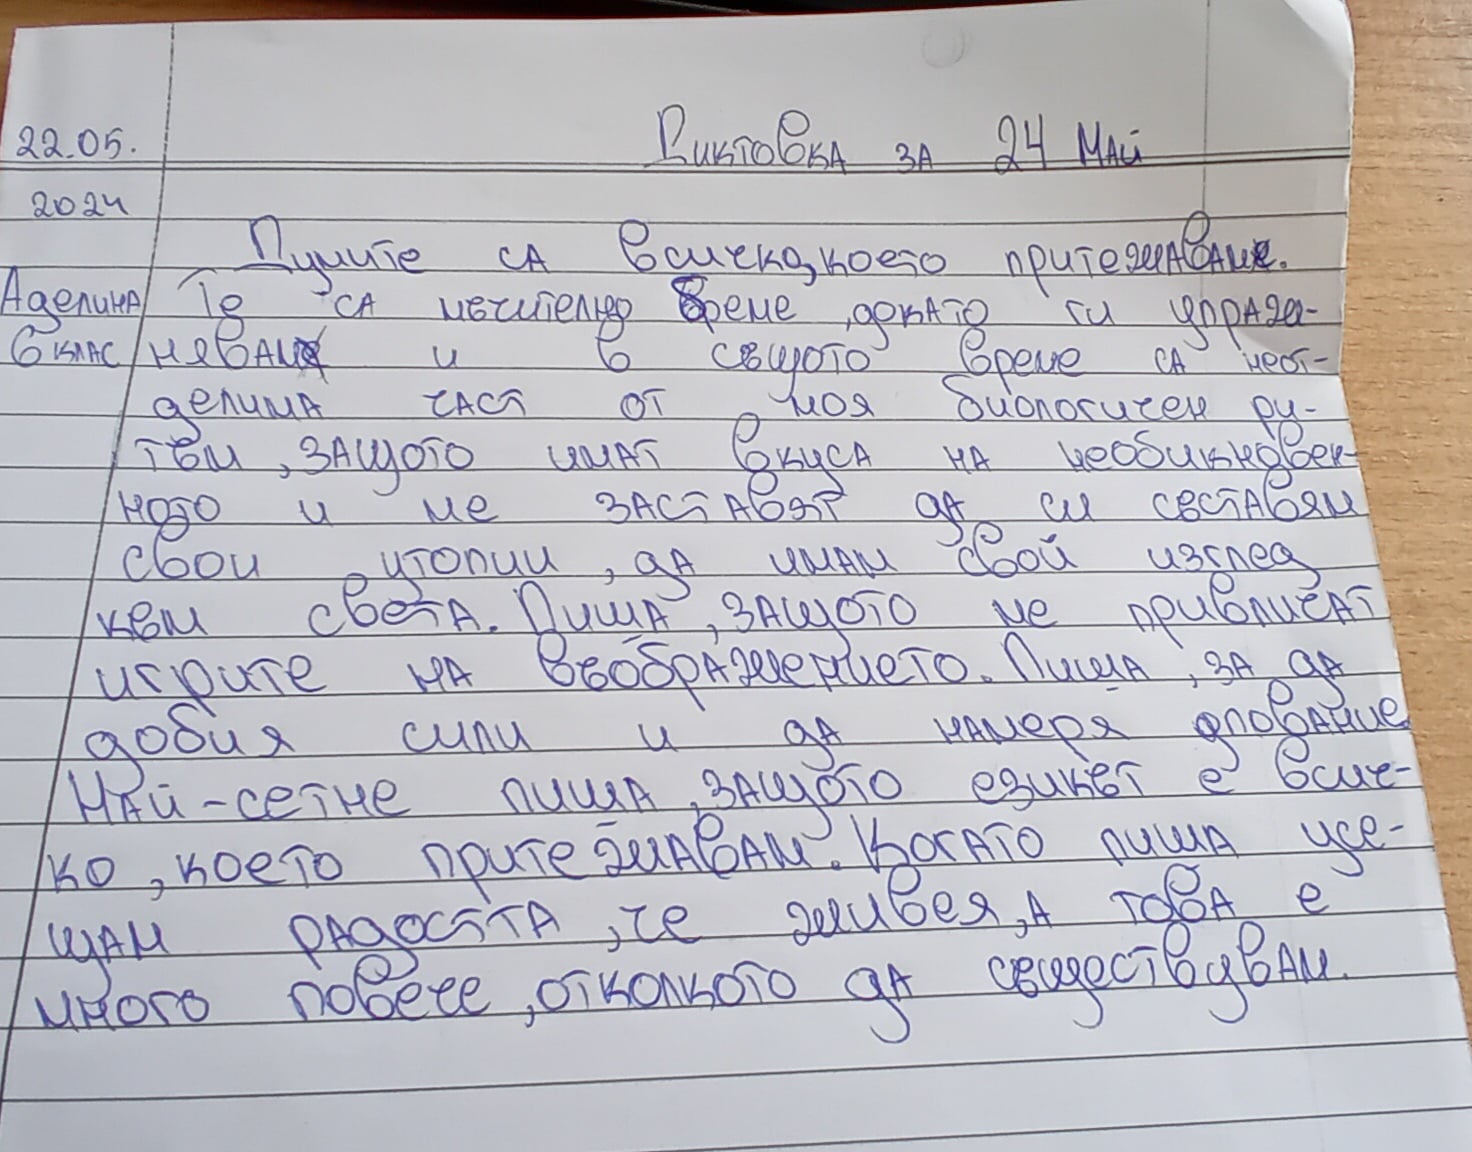 Диктовка за 24 май
22.05.
2024
Аделина
6 клас
Думите са всичко, което притежавам.
Те са мечтателно време, докато ги упраж-
нявам и в същото време са неот-
делима част от моя биологичен ри-
тъм, защото имат вкуса на необикновен-
ното и ме заставят да си съставям
свои утопии, да имам свой изглед
към света. Пиша, защото ме привличат
игрите на въображението. Пиша, за да
добия сили и да намеря упование
Най-сетне пиша, защото езикът е всич-
ко, което притежавам. Когато пиша усе-
щам радостта, че живея, а това е
много повече, отколкото да съществувам.